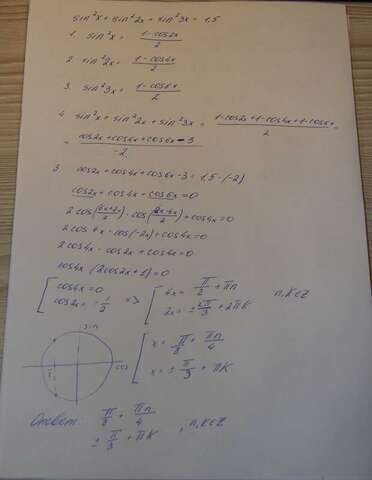 sin²x + sin²2x + sin²3x = 1,5
1. sin²x = (1-cos2x)/2
2. sin²2x = (1-cos4x)/2
3. sin²3x = (1-cos6x)/2
4. sin²x + sin²2x + sin²3x = (1-cos2x+1-cos4x+1-cos6x)/2 =
= (cos2x+cos4x+cos6x-3)/-2
5. cos2x+cos4x+cos6x-3 = 1,5·(-2)
cos2x+cos4x+cos6x=0
2cos((6x+2x)/2)·cos((2x-6x)/2)+cos4x=0
2cos4x·cos(-2x)+cos4x=0
2cos4x·cos2x+cos4x=0
cos4x(2cos2x+1)=0
[ cos4x=0 => [ 4x = π/2 + πn n,k∈Z
cos2x = -1/2 2x = ± 2π/3 + 2πk
sin
cos
[ x = π/8 + πn/4
x = ± π/3 + πk
Ответ: π/8 + πn/4
± π/3 + πk ; n,k∈Z